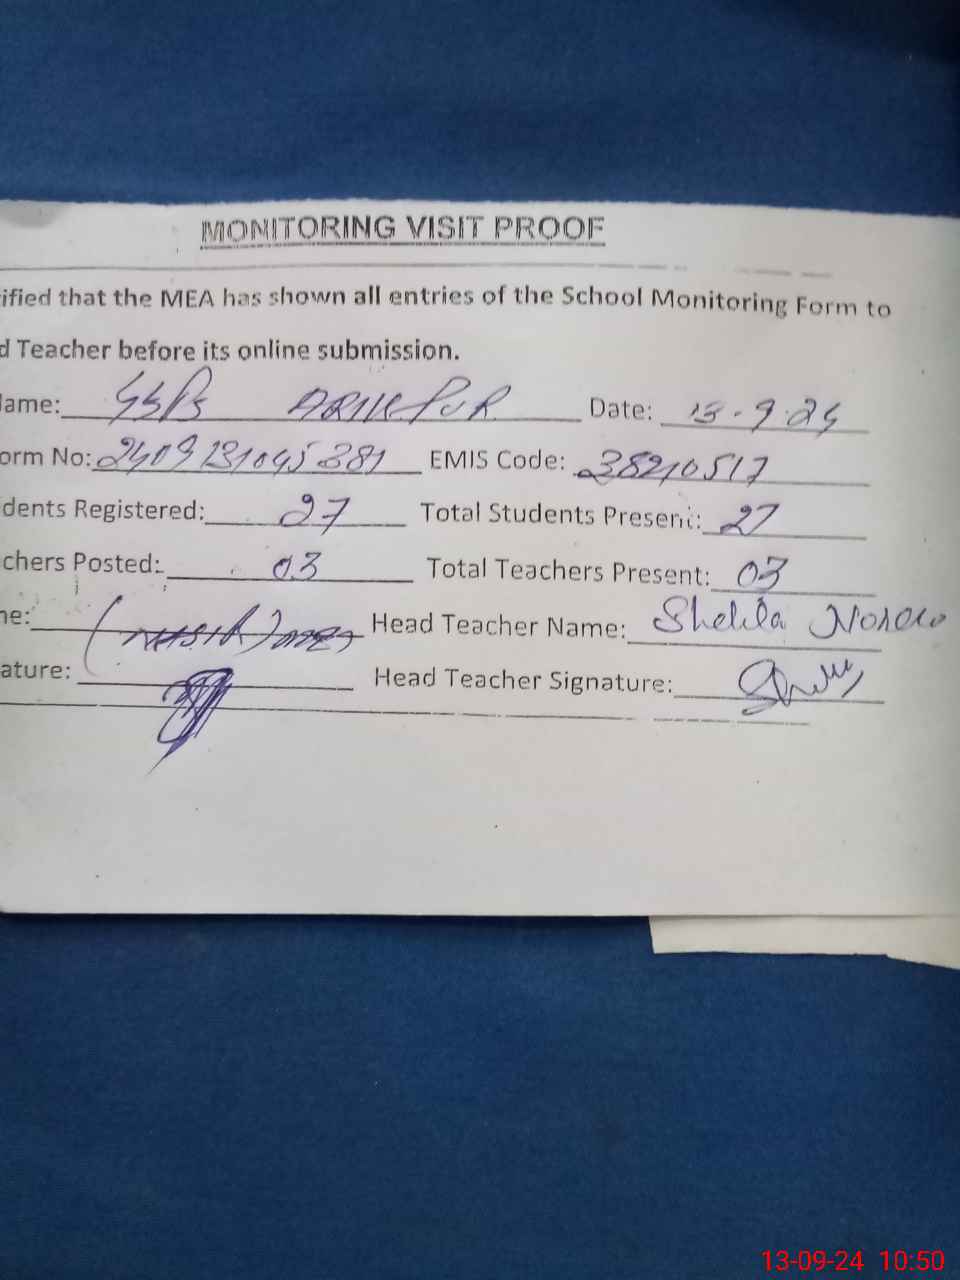 MONITORING VISIT PROOF
ified that the MEA has shown all entries of the School Monitoring Form to
d Teacher before its online submission.
ame: GGPS Date: 13-9-24
orm No: 2409131045381 EMIS Code: 38210517
dents Registered: 27 Total Students Present: 27
chers Posted: 03 Total Teachers Present: 03
ne: (NASIR) Head Teacher Name: Shehla
ature: Head Teacher Signature:
13-09-24 10:50